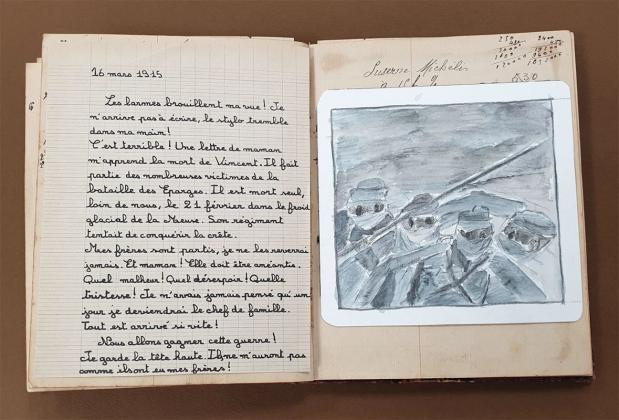 16 mars 1915
Les larmes brouillent ma vue ! Je
n'arrive pas à écrire, le stylo tremble
dans ma main !
C'est terrible ! Une lettre de maman
m'apprend la mort de Vincent. Il fait
partie des nombreuses victimes de la
bataille des Eparges. Il est mort seul,
loin de nous, le 21 février dans le froid
glacial de la Meuse. Son régiment
tentait de conquérir la crête.
Mes frères sont partis, je ne les reverrai
jamais. Et maman ! Elle doit être anéantie.
Quel malheur ! Quel désespoir ! Quelle
tristesse ! Je n'avais jamais pensé qu'un
jour je deviendrai le chef de famille.
Tout est arrivé si vite !
Nous allons gagner cette guerre !
Je garde la tête haute. Ils ne m'auront pas
comme ils ont eu mes frères !